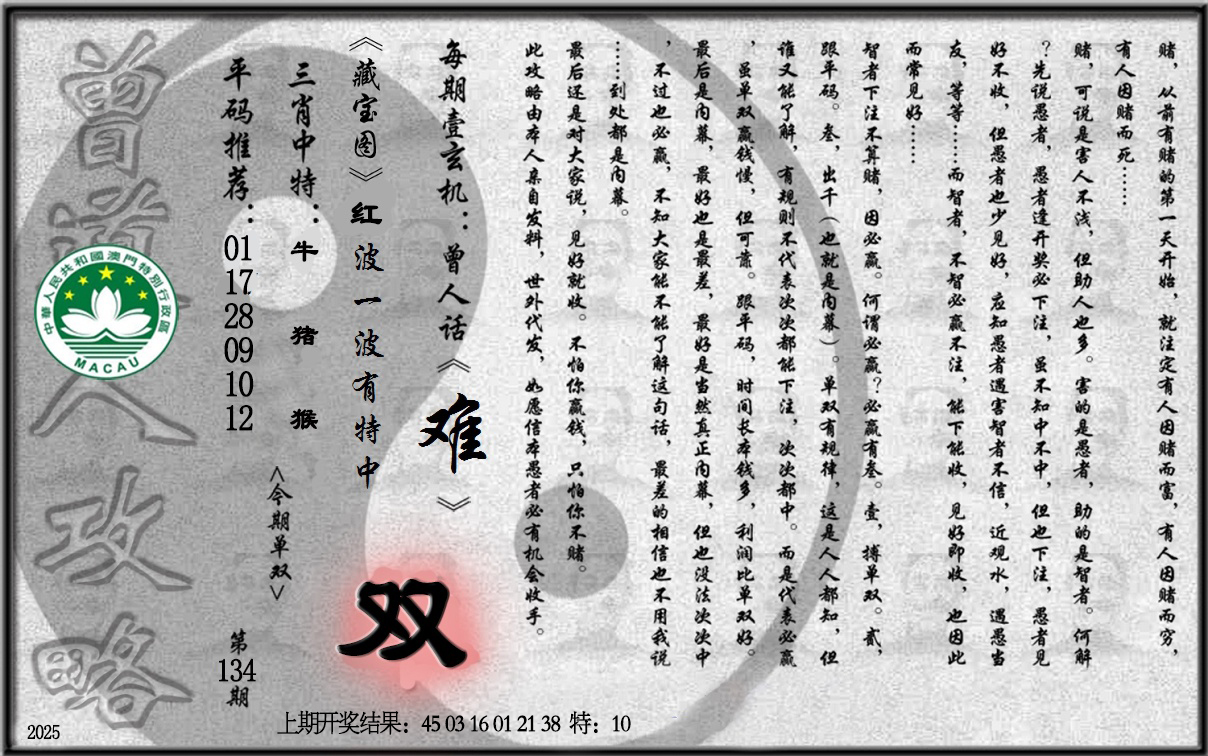 赌，从前有赌的第一天开始，就注定有人因赌而富，有人因赌而穷，
有人因赌而死……
赌，可说是害人不浅，但助人也多。害的是愚者，助的是智者。何解
？先说愚者，愚者逢开奖必下注，虽不知中不中，但也下注，愚者见
好不收，但愚者也少见好，应知愚者遇害智者不信，近观水，遇愚当
友，等等……而智者，不智必赢不注，能下能收，见好即收，也因此
而常见好……
智者下注不算赌，因必赢。何谓必赢？必赢有叁。壹，搏单双。贰，
跟平码。叁，出千（也就是内幕）。单双有规律，这是人人都知，但
谁又能了解，有规则不代表次次都能下注，次次都中。而是代表必赢
，虽单双赢钱慢，但可靠。跟平码，时间长本钱多，利润比单双好。
最后是内幕，最好也是最差，最好是当然真正内幕，但也没法次次中
，不过也必赢，不知大家能不能了解这句话，最差的相信也不用我说
……到处都是内幕。
最后还是对大家说，见好就收。不怕你赢钱，只怕你不赌。
此攻略由本人亲自发料，世外代发，如愿信本愚者必有机会收手。
每期壹玄机：曾人话《难》
《藏宝图》红波一波有特中
三肖中特：牛 猪 猴
平码推荐：01 17 28 09 10 12
<今期单双>
双
第134期
上期开奖结果：45 03 16 01 21 38 特：10
曾道人攻略
中華人民共和國澳門特別行政區
MACAU
2025